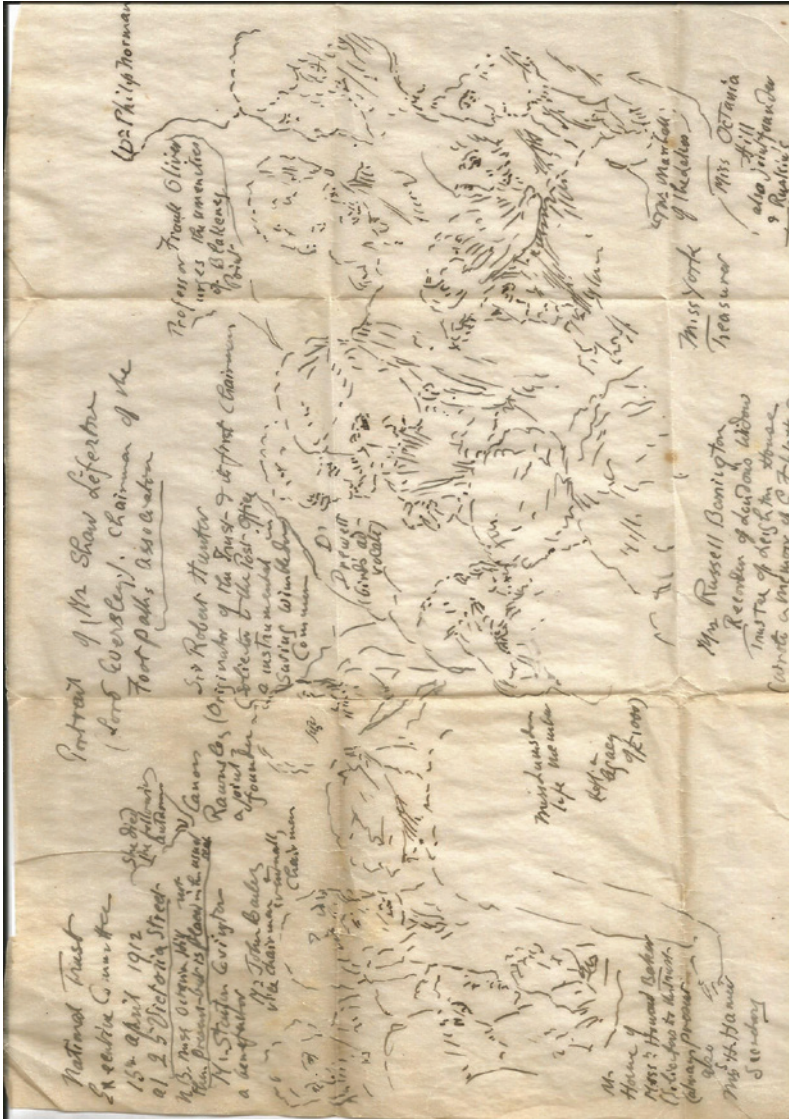 National Trust
Executive Committee
15th April 1912
at 25 Victoria Street
N.B. Miss Octavia Hill was
then present but is placed in the usual seat
She died
the following
autumn
Mr Stanton Covington
a benefactor
Mr John Bailey
vice chairman &
eventually
Chairman
Canon
Rawnsley
a joint
founder
Portrait of Mr Shaw Lefevre
(Lord Eversley). Chairman of the
Foot paths Association
Sir Robert Hunter
(Originator of the Trust & its first Chairman
Solicitor to the Post Office
& instrumental in
saving Wimbledon
Common
Dr
Drewett
(birds ad-
vocate)
Professor Frank Oliver
urges the amenities
of Blakeney
Point
Philip Norman
Miss Lumsden
life member
Left a
legacy
of £1000
Mr
Horne of
Messrs Horne & Birkett
(Solicitors to the Trust
(always present
also
Hamer
Secretary
Mrs Russell Barrington
Recorder of London's Widow
Trustee of Leighton House
(wrote a memoir of G F Watts
Miss Yorke
Treasurer
Marshall
of the Lakes
Miss Octavia
Hill
also joint founder
& Ruskin's